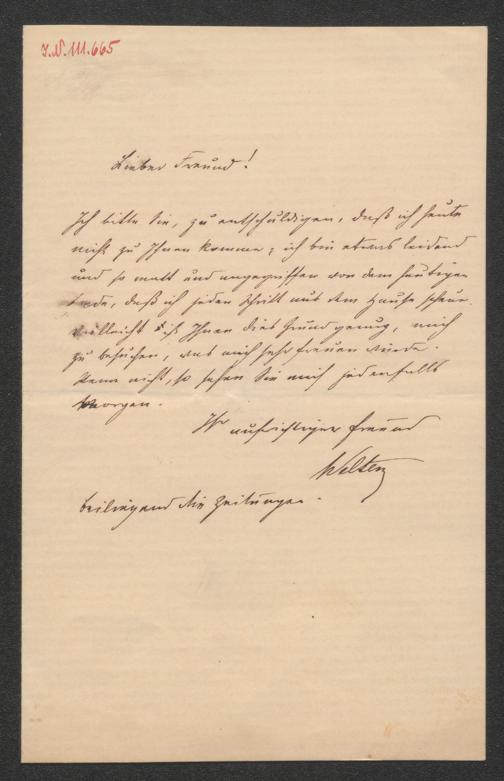 I.N. 111.665
Lieber Freund!
Ich bitte Sie, zu entschuldigen, daß ich heute
nicht zu Ihnen komme; ich bin etwas leidend
und so matt und angegriffen von dem heutigen
daß ich jeden Schritt aus dem Hause scheue.
Vielleicht ist Ihnen dies Grund genug, mich
zu besuchen, was mich sehr freuen würde.
Wenn nicht, so sehen Sie mich jedenfalls
morgen.
Ihr aufrichtiger Freund
Welten
Beiliegend die Zeitungen.